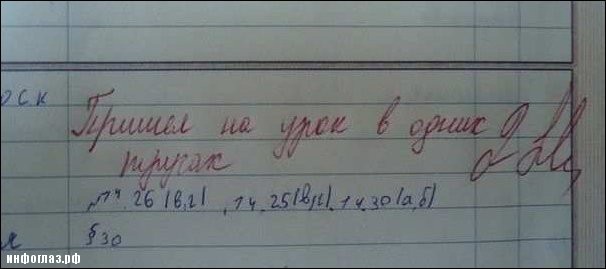 оск
Пришел на урок в одних
трусах
14.26 (в,г), 14.25(в,г), 14.30(а,б)
§30
инфоглаз.рф